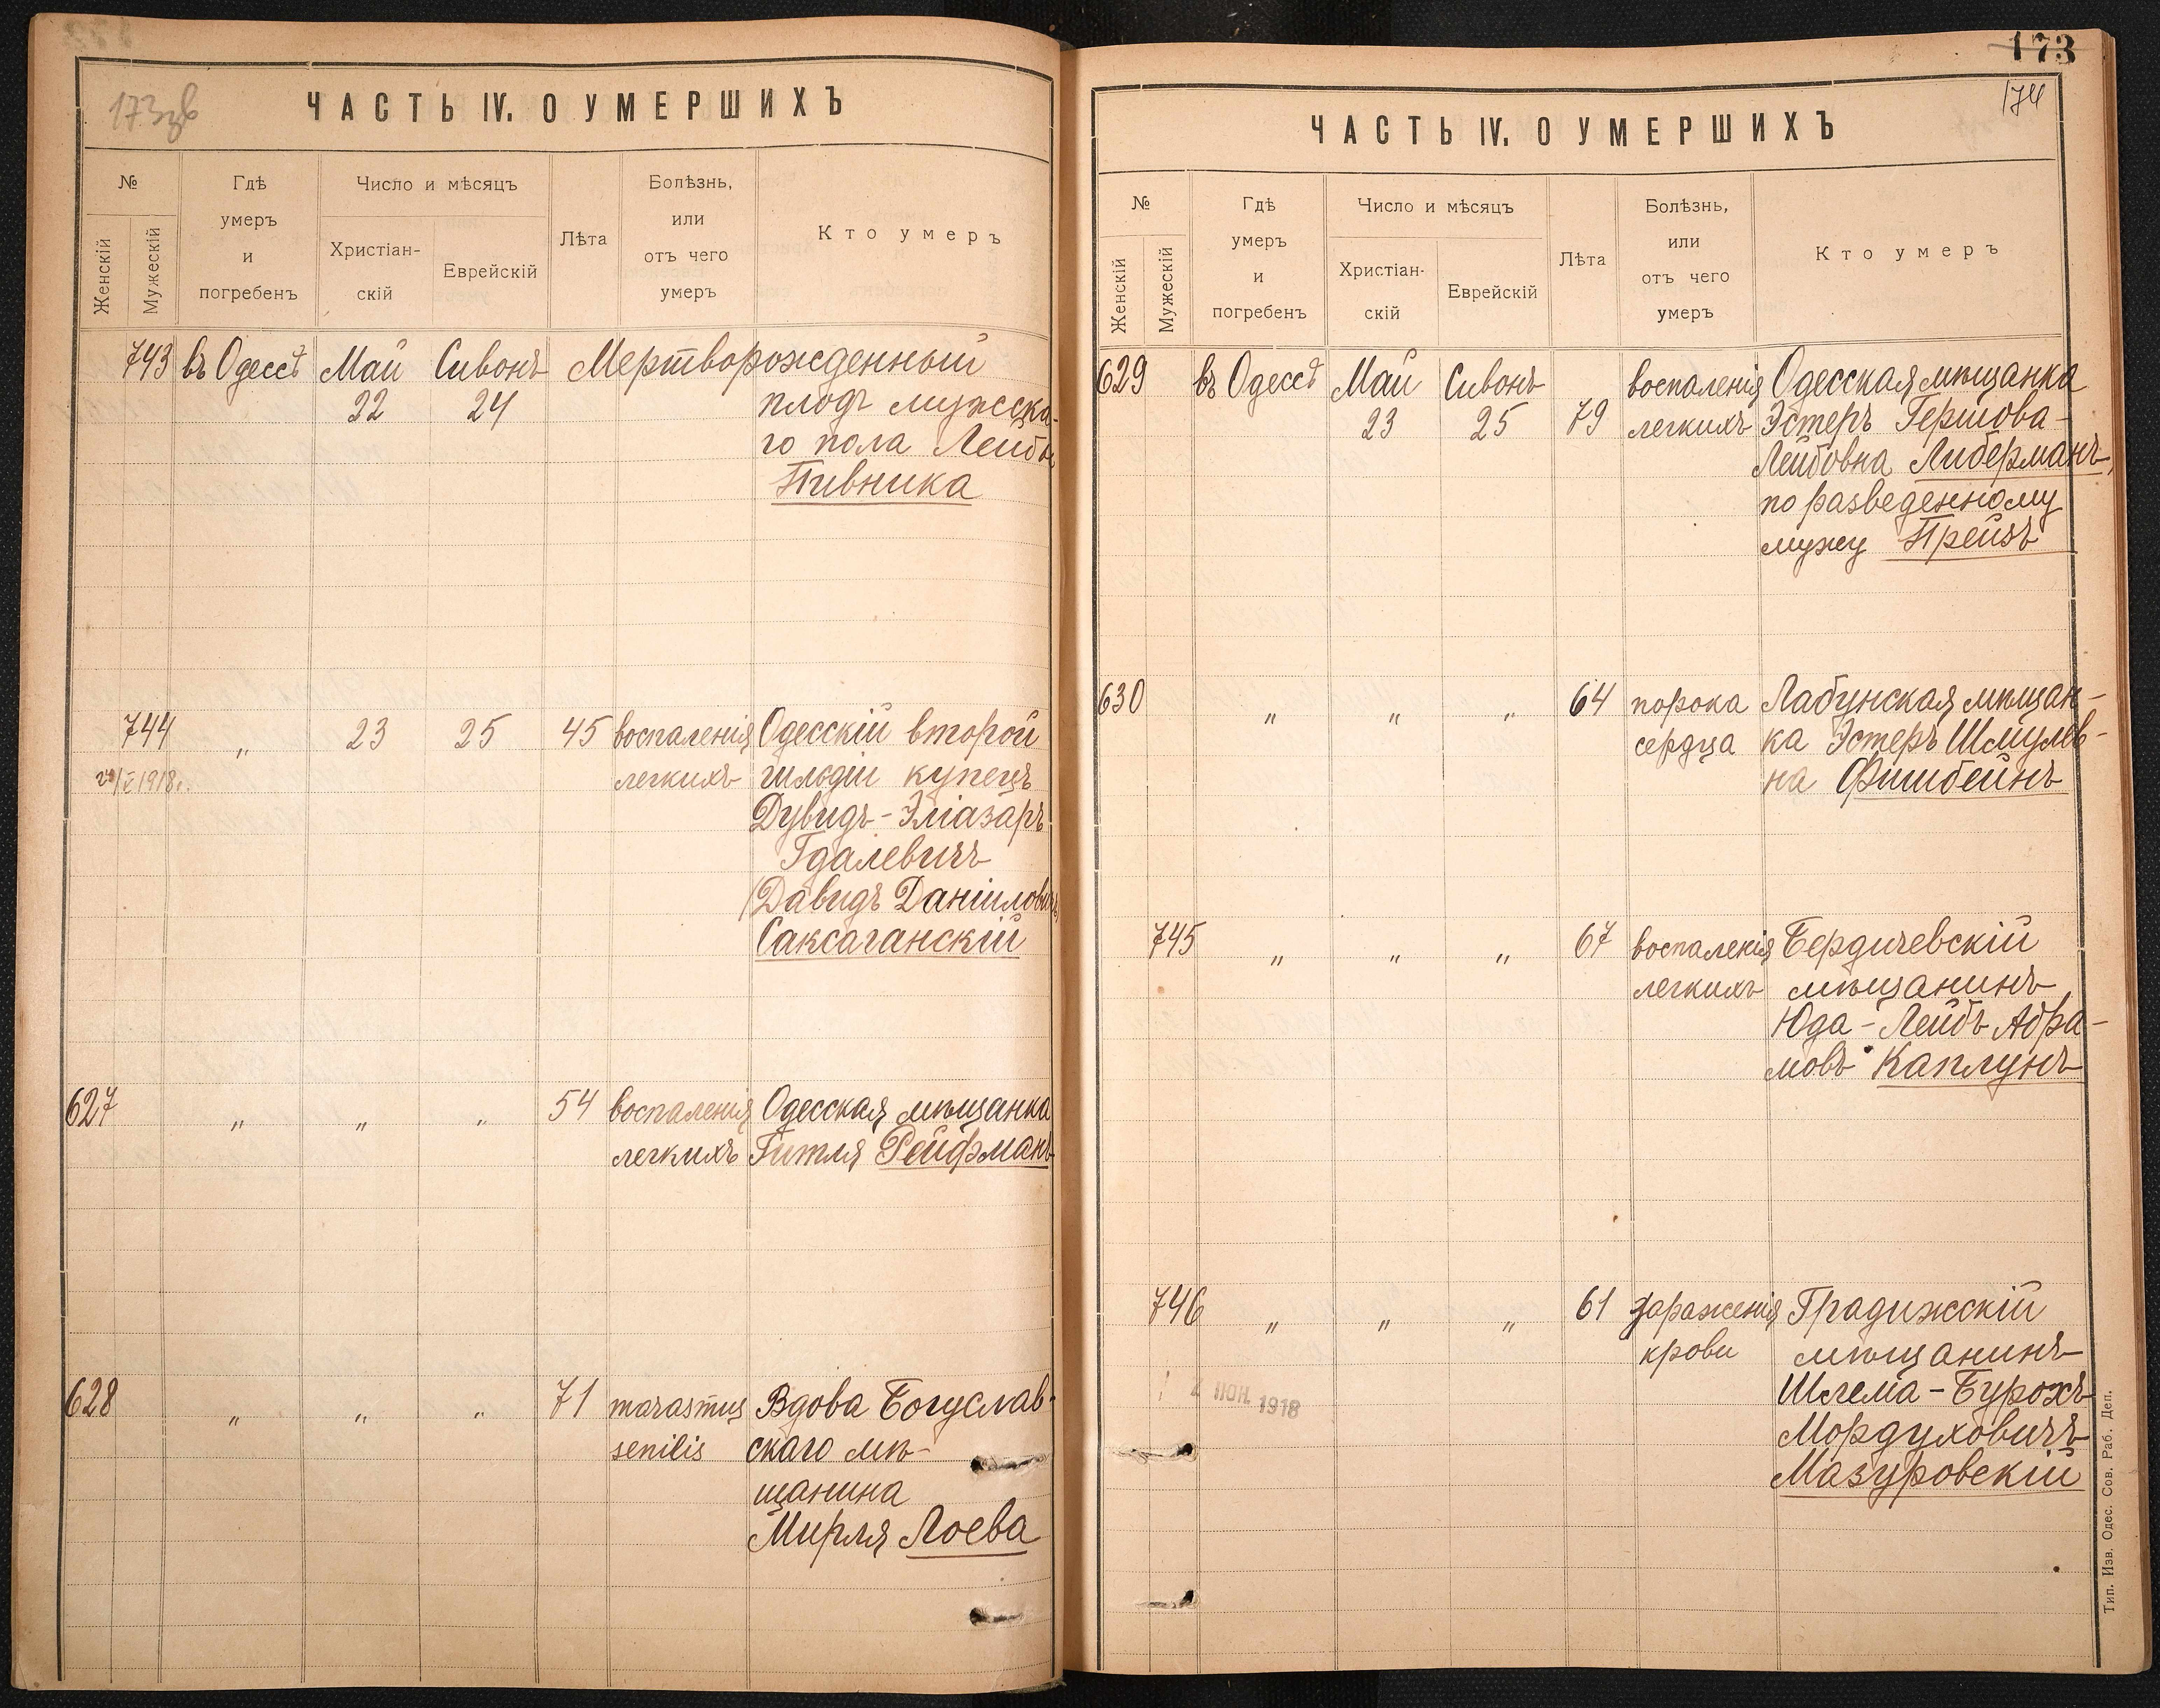 173зв
ЧАСТЬ IV. О УМЕРШИХЪ
№
Женскій
Мужескій
Гдѣ
умеръ
и
погребенъ
Число и мѣсяцъ
Христіан-
скій
Еврейскій
Лѣта
Болѣзнь,
или
отъ чего
умеръ
Кто умеръ
743 въ Одессѣ Май Сивонъ Мертворожденный
22 24 плодъ мужска-
го пола Лейбы
Пивника
744 „ 23 25 45 воспаленія Одесскій второй
1918г. легкихъ гильдіи купецъ
Дувидъ-Эліазаръ
Гдалевичъ
(Давидъ Даніиловичъ)
Саксаганскій
627 „ „ „ 54 воспаленія Одесская мѣщанка
легкихъ Гитля Рейфманъ
628 „ „ „ 71 marasmus Вдова Богуслав-
senilis скаго мѣ-
щанина
Мирля Лоева
173
174
ЧАСТЬ IV. О УМЕРШИХЪ
№
Женскій
Мужескій
Гдѣ
умеръ
и
погребенъ
Число и мѣсяцъ
Христіан-
скій
Еврейскій
Лѣта
Болѣзнь,
или
отъ чего
умеръ
Кто умеръ
629 въ Одессѣ Май Сивонъ воспаленія Одесская мѣщанка
23 25 79 легкихъ Эстеръ Гершова-
Лейбовна Либерманъ,
по разведенному
мужу Прейзъ
630 „ „ „ 64 порока Лабунская мѣщан-
сердца ка Эстеръ Шмулев-
на Фишбейнъ
745 „ „ „ 67 воспаленія Бердичевскій
легкихъ мѣщанинъ
Юда-Лейбъ Абра-
мовъ Каплунъ
746 „ „ „ 61 зараженія Градижскій
крови мѣщанинъ
Шлема-Бурохъ
4 ИЮН. 1918
Мордуховичъ
Мазуровскій
Тип. Изв. Одес. Сов. Раб. Деп.